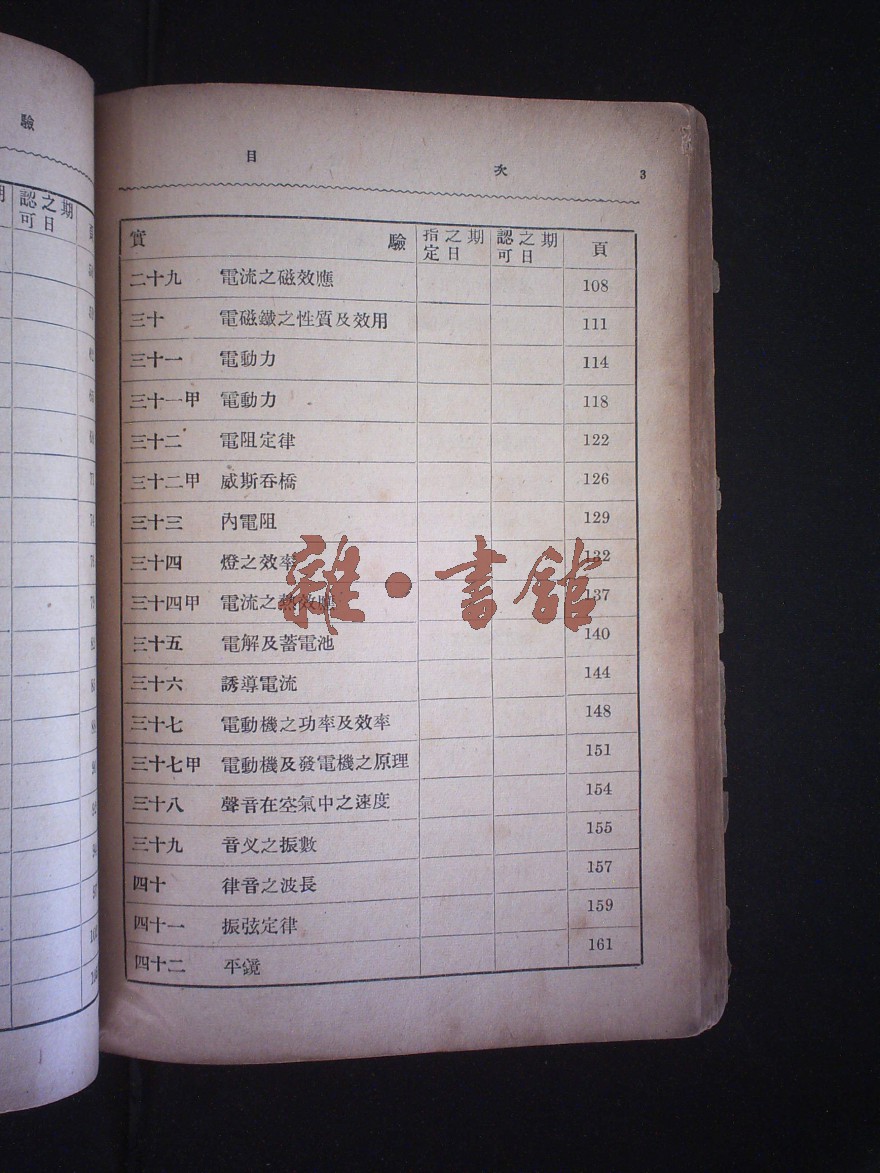 驗
認之期
可日
頁
目 次 3
實 驗 指定之日期 認可之日期 頁
二十九 電流之磁效應 108
三十 電磁鐵之性質及效用 111
三十一 電動力 114
三十一甲 電動力 118
三十二 電阻定律 122
三十二甲 威斯吞橋 126
三十三 內電阻 129
三十四 燈之效率 132
三十四甲 電流之熱效應 137
三十五 電解及蓄電池 140
三十六 誘導電流 144
三十七 電動機之功率及效率 148
三十七甲 電動機及發電機之原理 151
三十八 聲音在空氣中之速度 154
三十九 音叉之振數 155
四十 律音之波長 157
四十一 振弦定律 159
四十二 平鏡 161
雜·書館